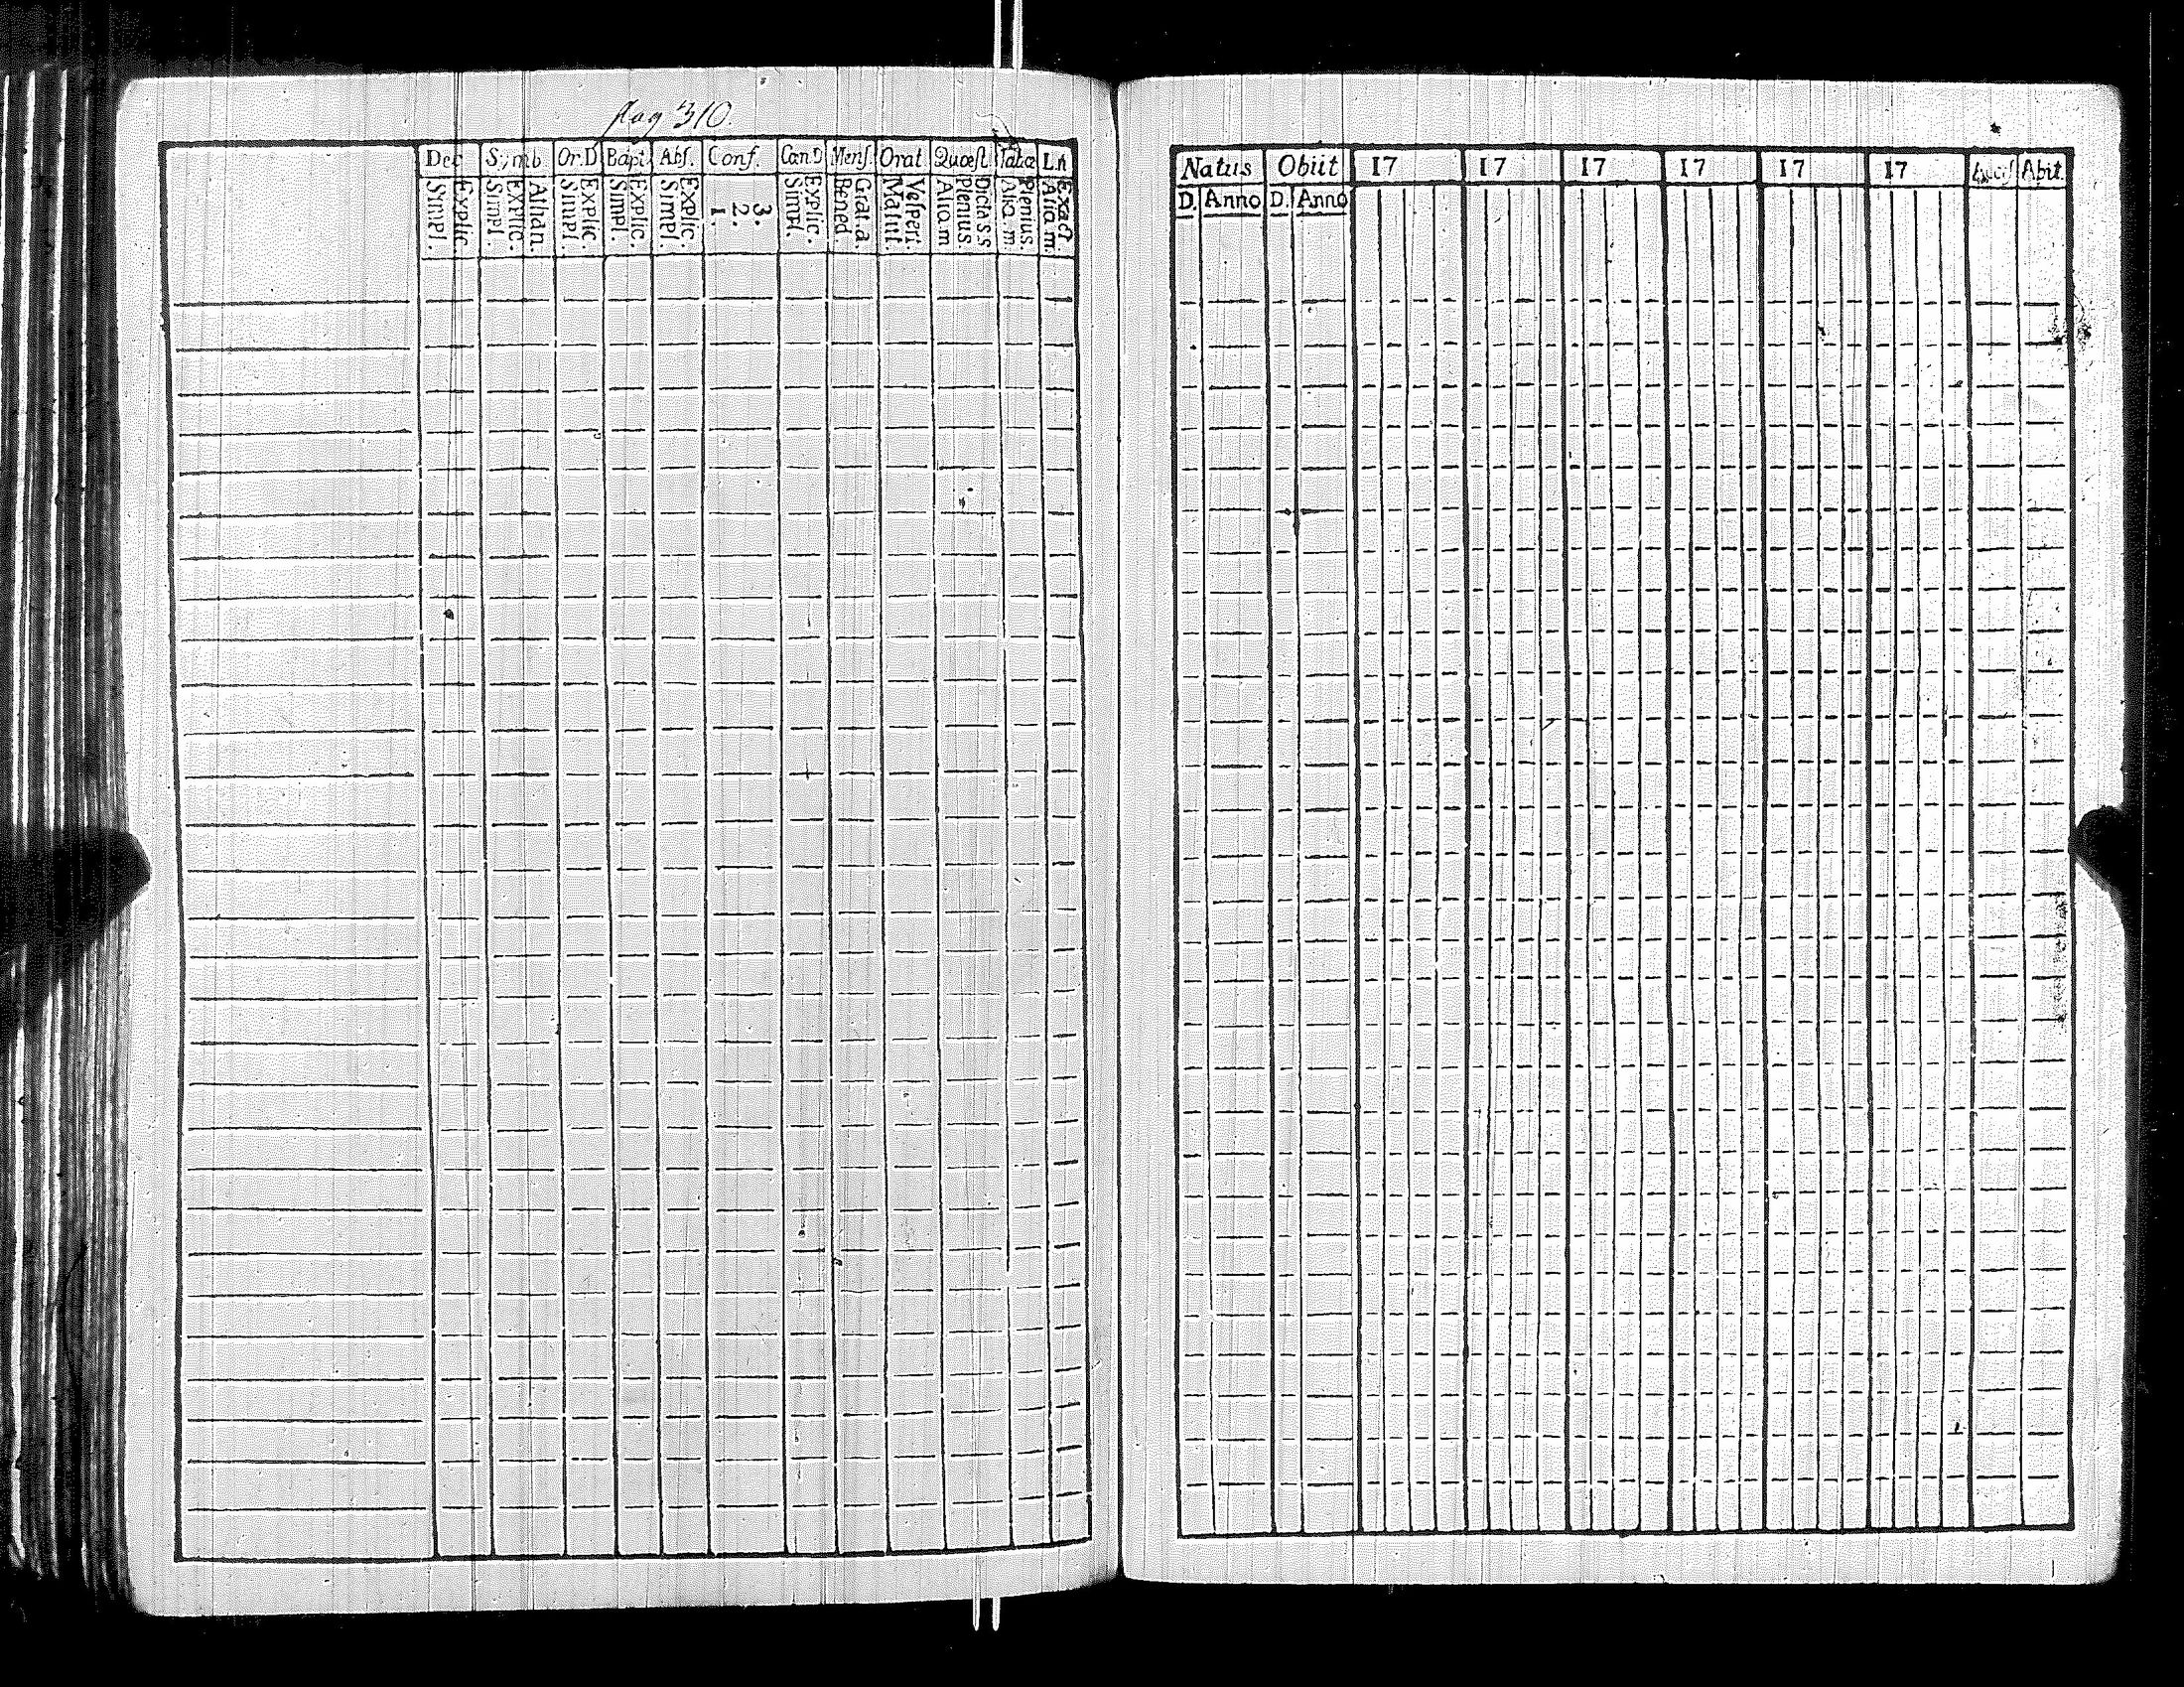 pag 310.
Dec Symb Or.D Bapt. Abſ. Conf. Cœn.D Menſ. Orat. Quæſt. Tabæ L.n
Simpl. Explic. Simpl. Explic. Athan. Simpl. Explic. Simpl. Explic. Simpl. Explic. 1. 2. 3. Simpl. Explic. Bened. Grat.a. Matut. Veſpert. Aliq.m Plenius. Dicta s.s Aliq.m. Plenius. Aliq.m. Exact.
Natus Obiit 17 17 17 17 17 17 Acceſ Abit.
D. Anno D. Anno